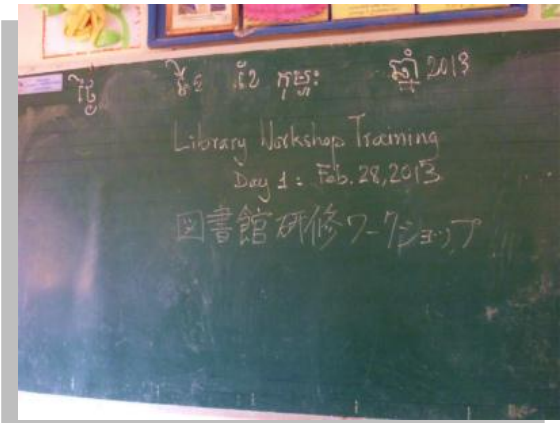 ថ្ងៃ ខែ កុម្ភៈ ឆ្នាំ 2013
Library Workshop Training
Day 1: Feb. 28, 2013
図書館研修ワークショップ